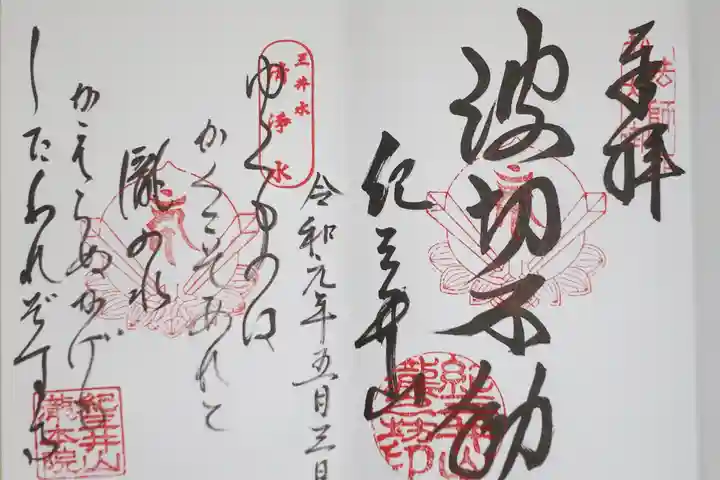 奉拝
波切不動
紀三井山
令和元年五月三日
三井水
清浄水
ゆくものは
かくこそあれと
瀧の水
かえらぬかげ
したわれぞする
紀三井山
瀧本院